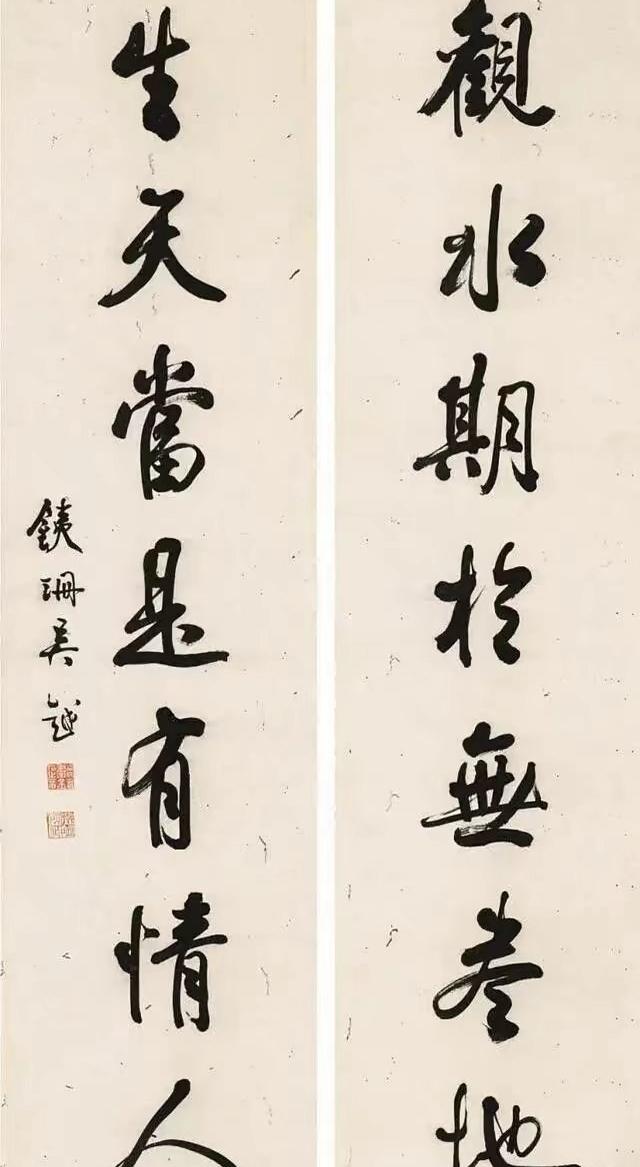 觀水期於無盡地
生天當是有情人
銕珊吳鉞